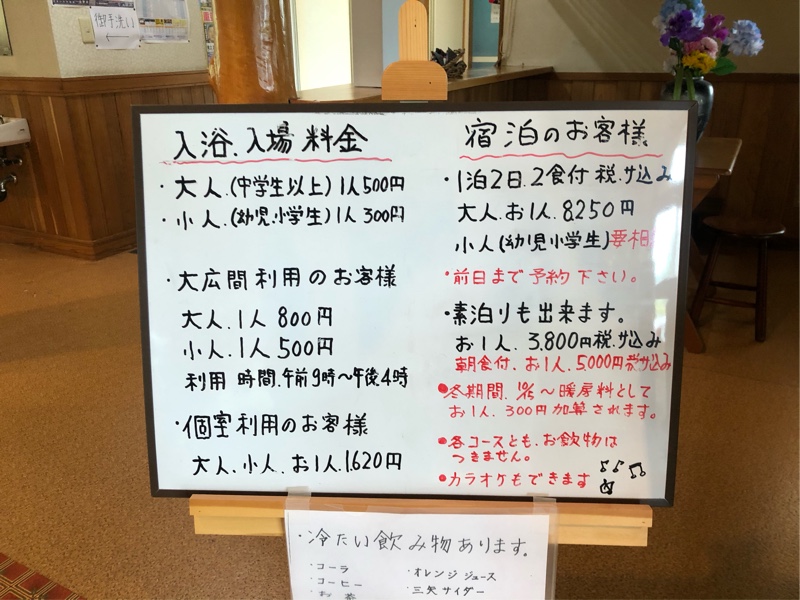 御手洗い
入浴.入場 料金
・大人.(中学生以上)1人500円
・小人.(幼児.小学生)1人 300円
・大広間利用のお客様
大人.1人 800円
小人.1人 500円
利用 時間.午前9時〜午後4時
・個室利用のお客様
大人.小人.お1人1.620円
宿泊のお客様
・1泊2日.2食付 税.サ込み
大人.お1人.8.250円
小人(幼児小学生)要相
・前日まで予約下さい。
・素泊りも出来ます。
お1人.3.800円税.サ込み
朝食付.お1人.5.000円税サ込み
●冬期間.10/15〜暖房料として
お1人.300円加算されます。
●各コースとも.お飲物は
つきません。
●カラオケもできます
・冷たい飲み物あります。
・コーラ
・コーヒー
・お茶
・オレンジジュース
・三矢サイダー